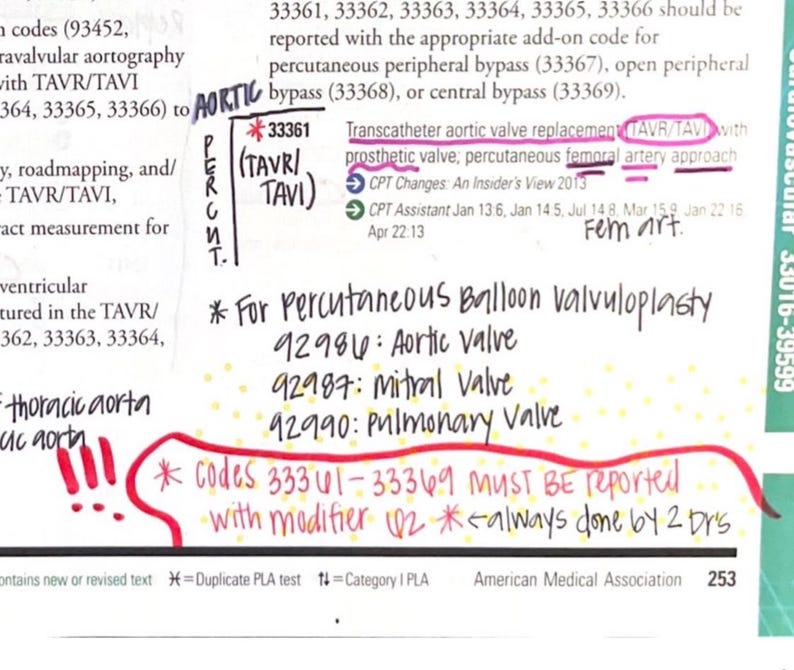 n codes (93452,
ravalvular aortography
with TAVR/TAVI
364, 33365, 33366) to
y, roadmapping, and/
TAVR/TAVI,
act measurement for
ventricular
tured in the TAVR/
362, 33363, 33364,
thoracic aorta
aortA
33361, 33362, 33363, 33364, 33365, 33366 should be
reported with the appropriate add-on code for
percutaneous peripheral bypass (33367), open peripheral
bypass (33368), or central bypass (33369).
AORTIC
PERCUT.
* 33361 Transcatheter aortic valve replacement (TAVR/TAVI) with
(TAVR/TAVI) prosthetic valve; percutaneous femoral artery approach
CPT Changes: An Insider's View 2013
CPT Assistant Jan 13:6, Jan 14:5, Jul 14:8, Mar 15:9, Jan 22:16,
Apr 22:13
Fem art.
* For Percutaneous Balloon Valvuloplasty
92986: Aortic Valve
92987: Mitral Valve
92990: Pulmonary Valve
!!!
* Codes 33361-33369 MUST BE reported
with modifier 62 * ←always done by 2 Dr's
ontains new or revised text Ж=Duplicate PLA test ↑↓=Category I PLA American Medical Association 253
Cardiovascular 33016-39599